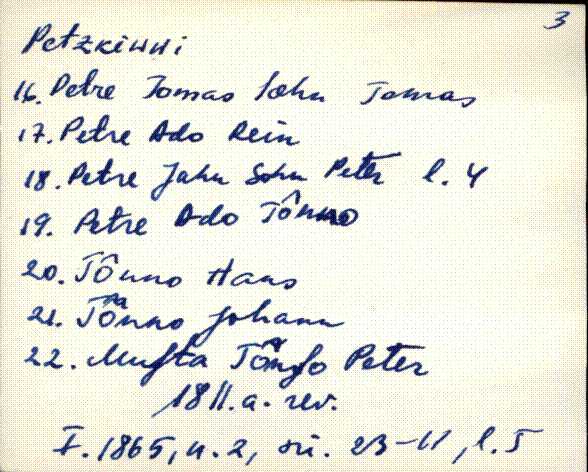 3
Petzkiwwi
16. Petre Tomas Sohn Tomas
17. Petre Ado Rein
18. Petre Jahn Sohn Peter l. 4
19. Petre Ado Tônno
20. Tônno Hans
21. Tônno Johann
22. Mussta Peter
1811.a. rev.
F. 1865, n. 2, sü. 23-U, l. 5